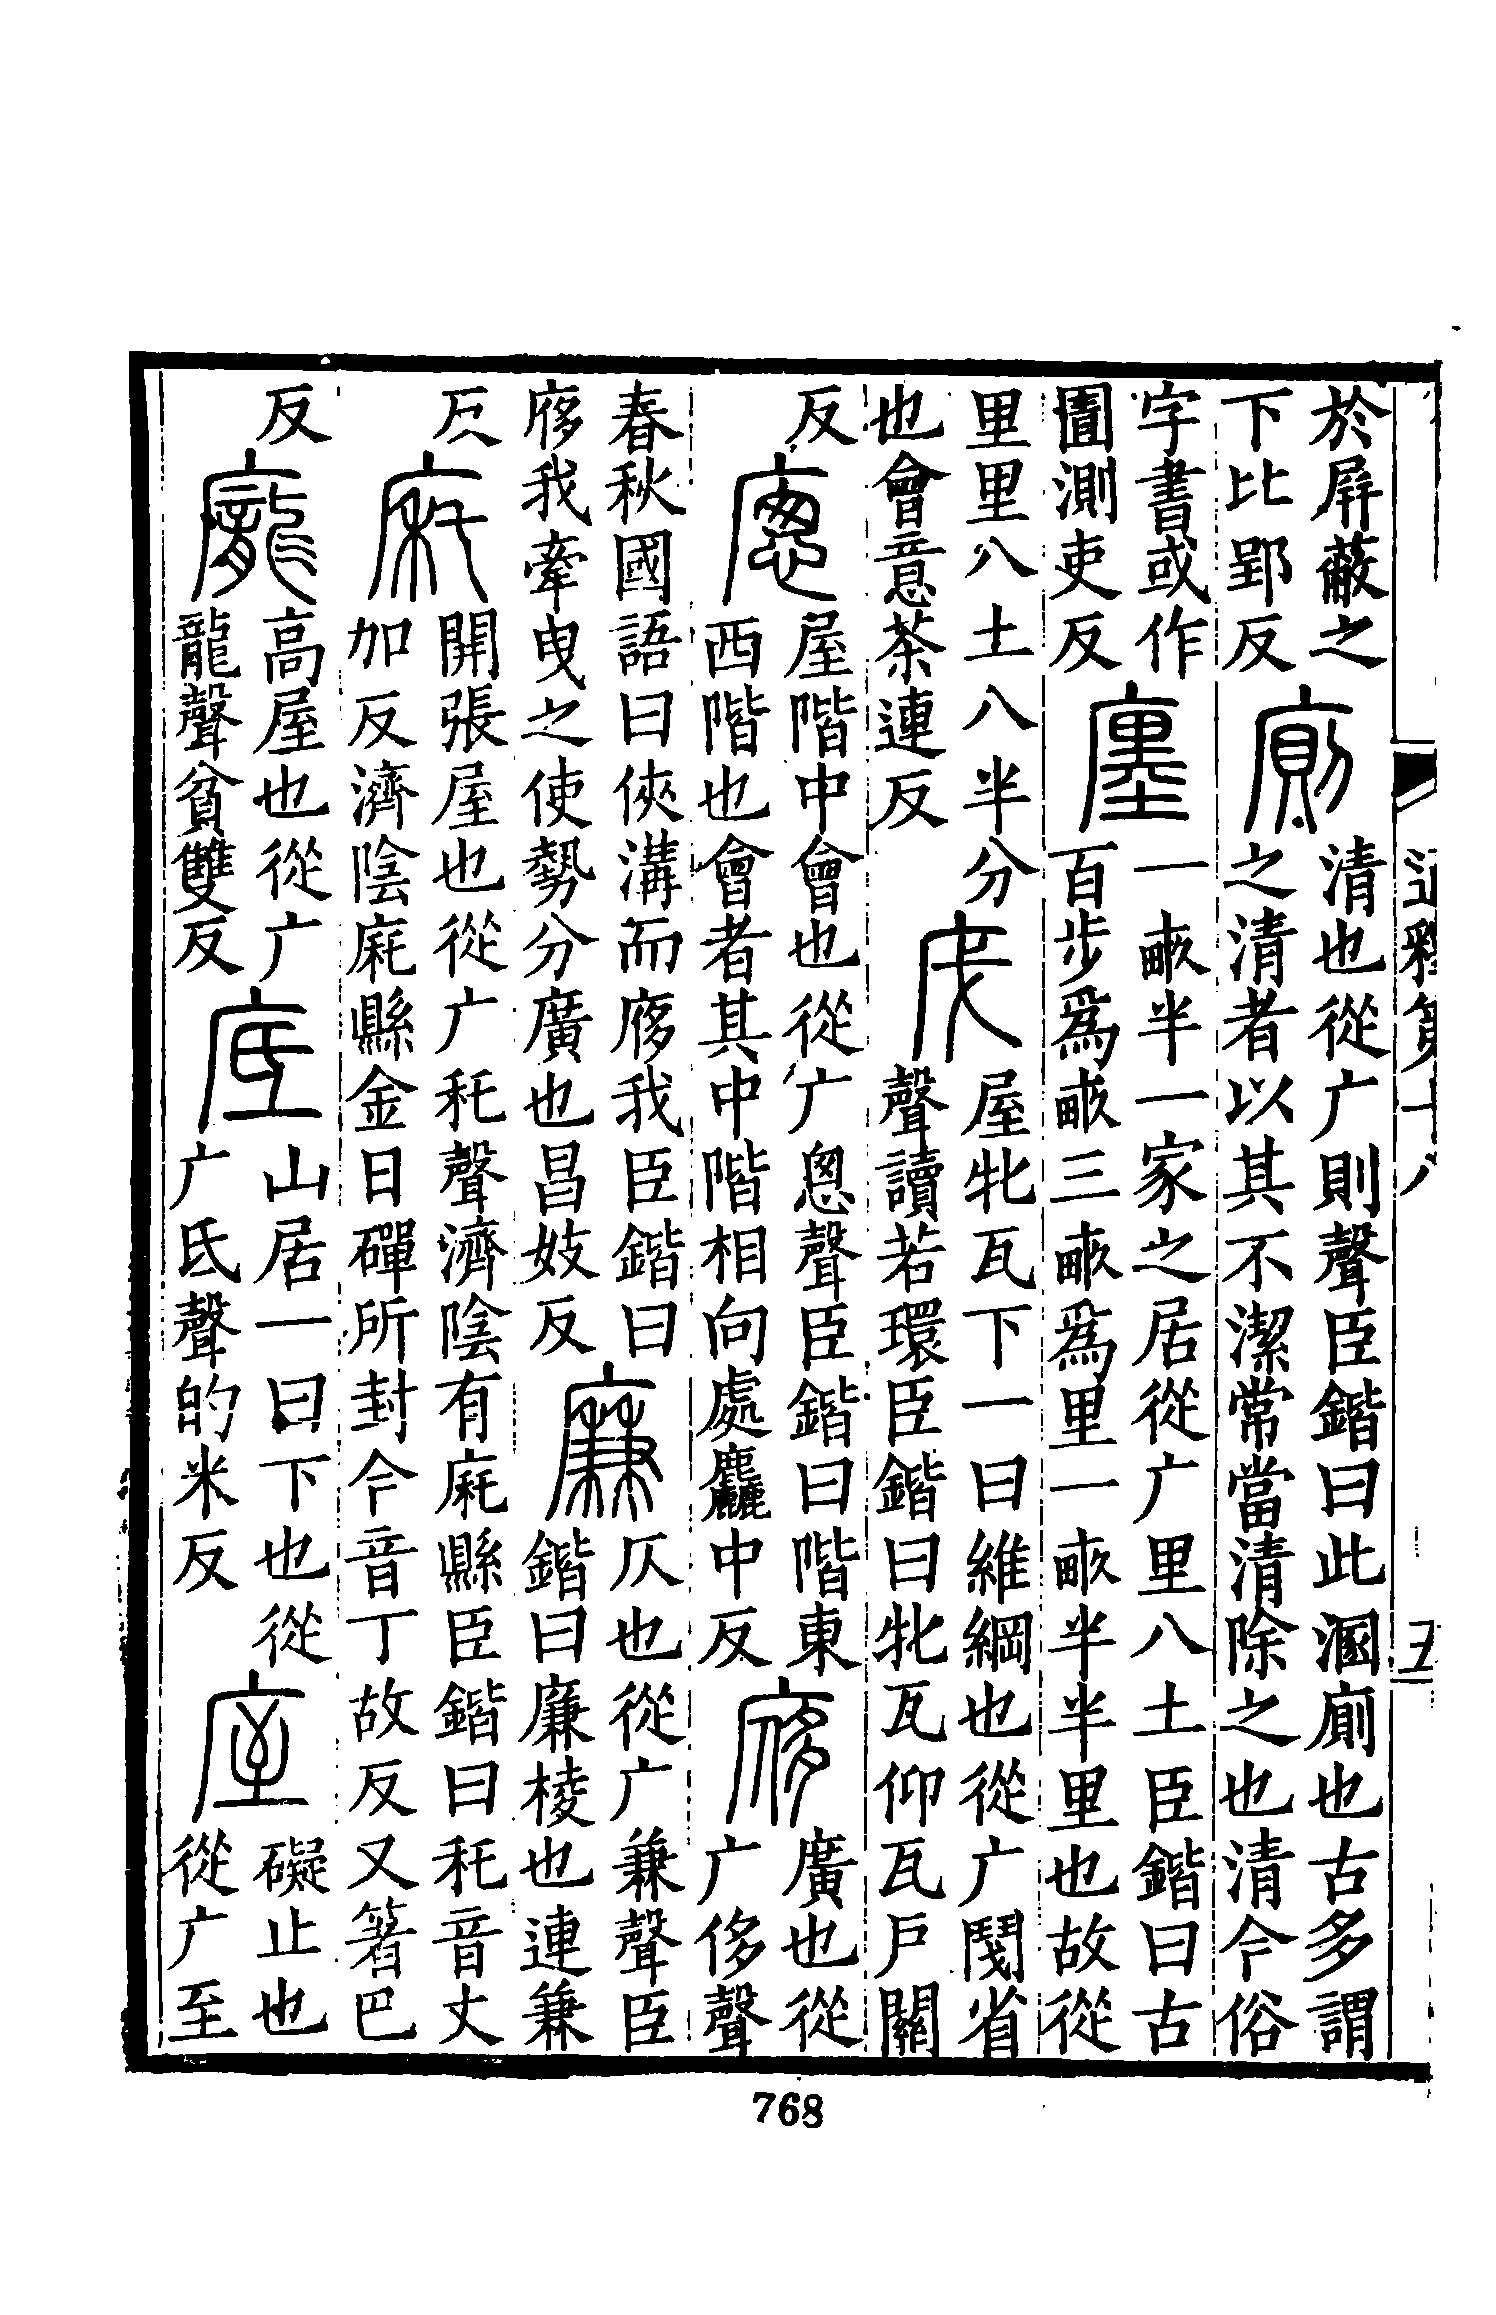 於屛蔽之
下比郢反
廁
清也從广則聲臣鍇曰此溷廁也古多謂
之清者以其不潔常當清除之也清今俗
字書或作
圊測吏反
廛
一畞半一家之居從广里八土臣鍇曰古
百步爲畞三畞爲里一畞半半里也故從
里里八土八半分
也會意茶連反
屋牝瓦下一曰維綱也從广省
聲讀若環臣鍇曰牝瓦仰瓦戶關
反
㢔
屋階中會也從广悤聲臣鍇曰階東
西階也會者其中階相向處麤中反
㢋
廣也從
广侈聲
春秋國語曰俠溝而㢋我臣鍇曰
㢋我牽曳之使勢分廣也昌妓反
廉
仄也從广兼聲臣
鍇曰廉棱也連兼
反
㢉
開張屋也從广秅聲濟陰有㢉縣臣鍇曰秅音丈
加反濟陰㢉縣金日磾所封今音丁故反又箸巴
反
龐
高屋也從广
龍聲貧雙反
底
山居一曰下也從
广氐聲的米反
庢
礙止也
從广至
通釋第十八
五
768